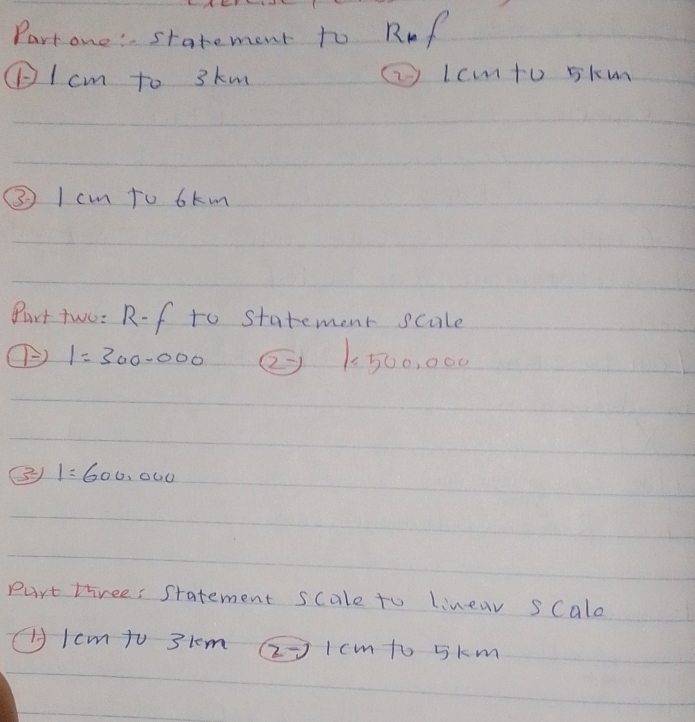 Part one:- statement to R.f
1- 1 cm to 3km 2- 1cm to 5km
3- 1 cm to 6km
Part two: R-f to statement scale
1- 1=300-000 2- 1:500,000
3- 1:600,000
Part three: Statement scale to linear scale
1- 1cm to 3km 2- 1cm to 5km